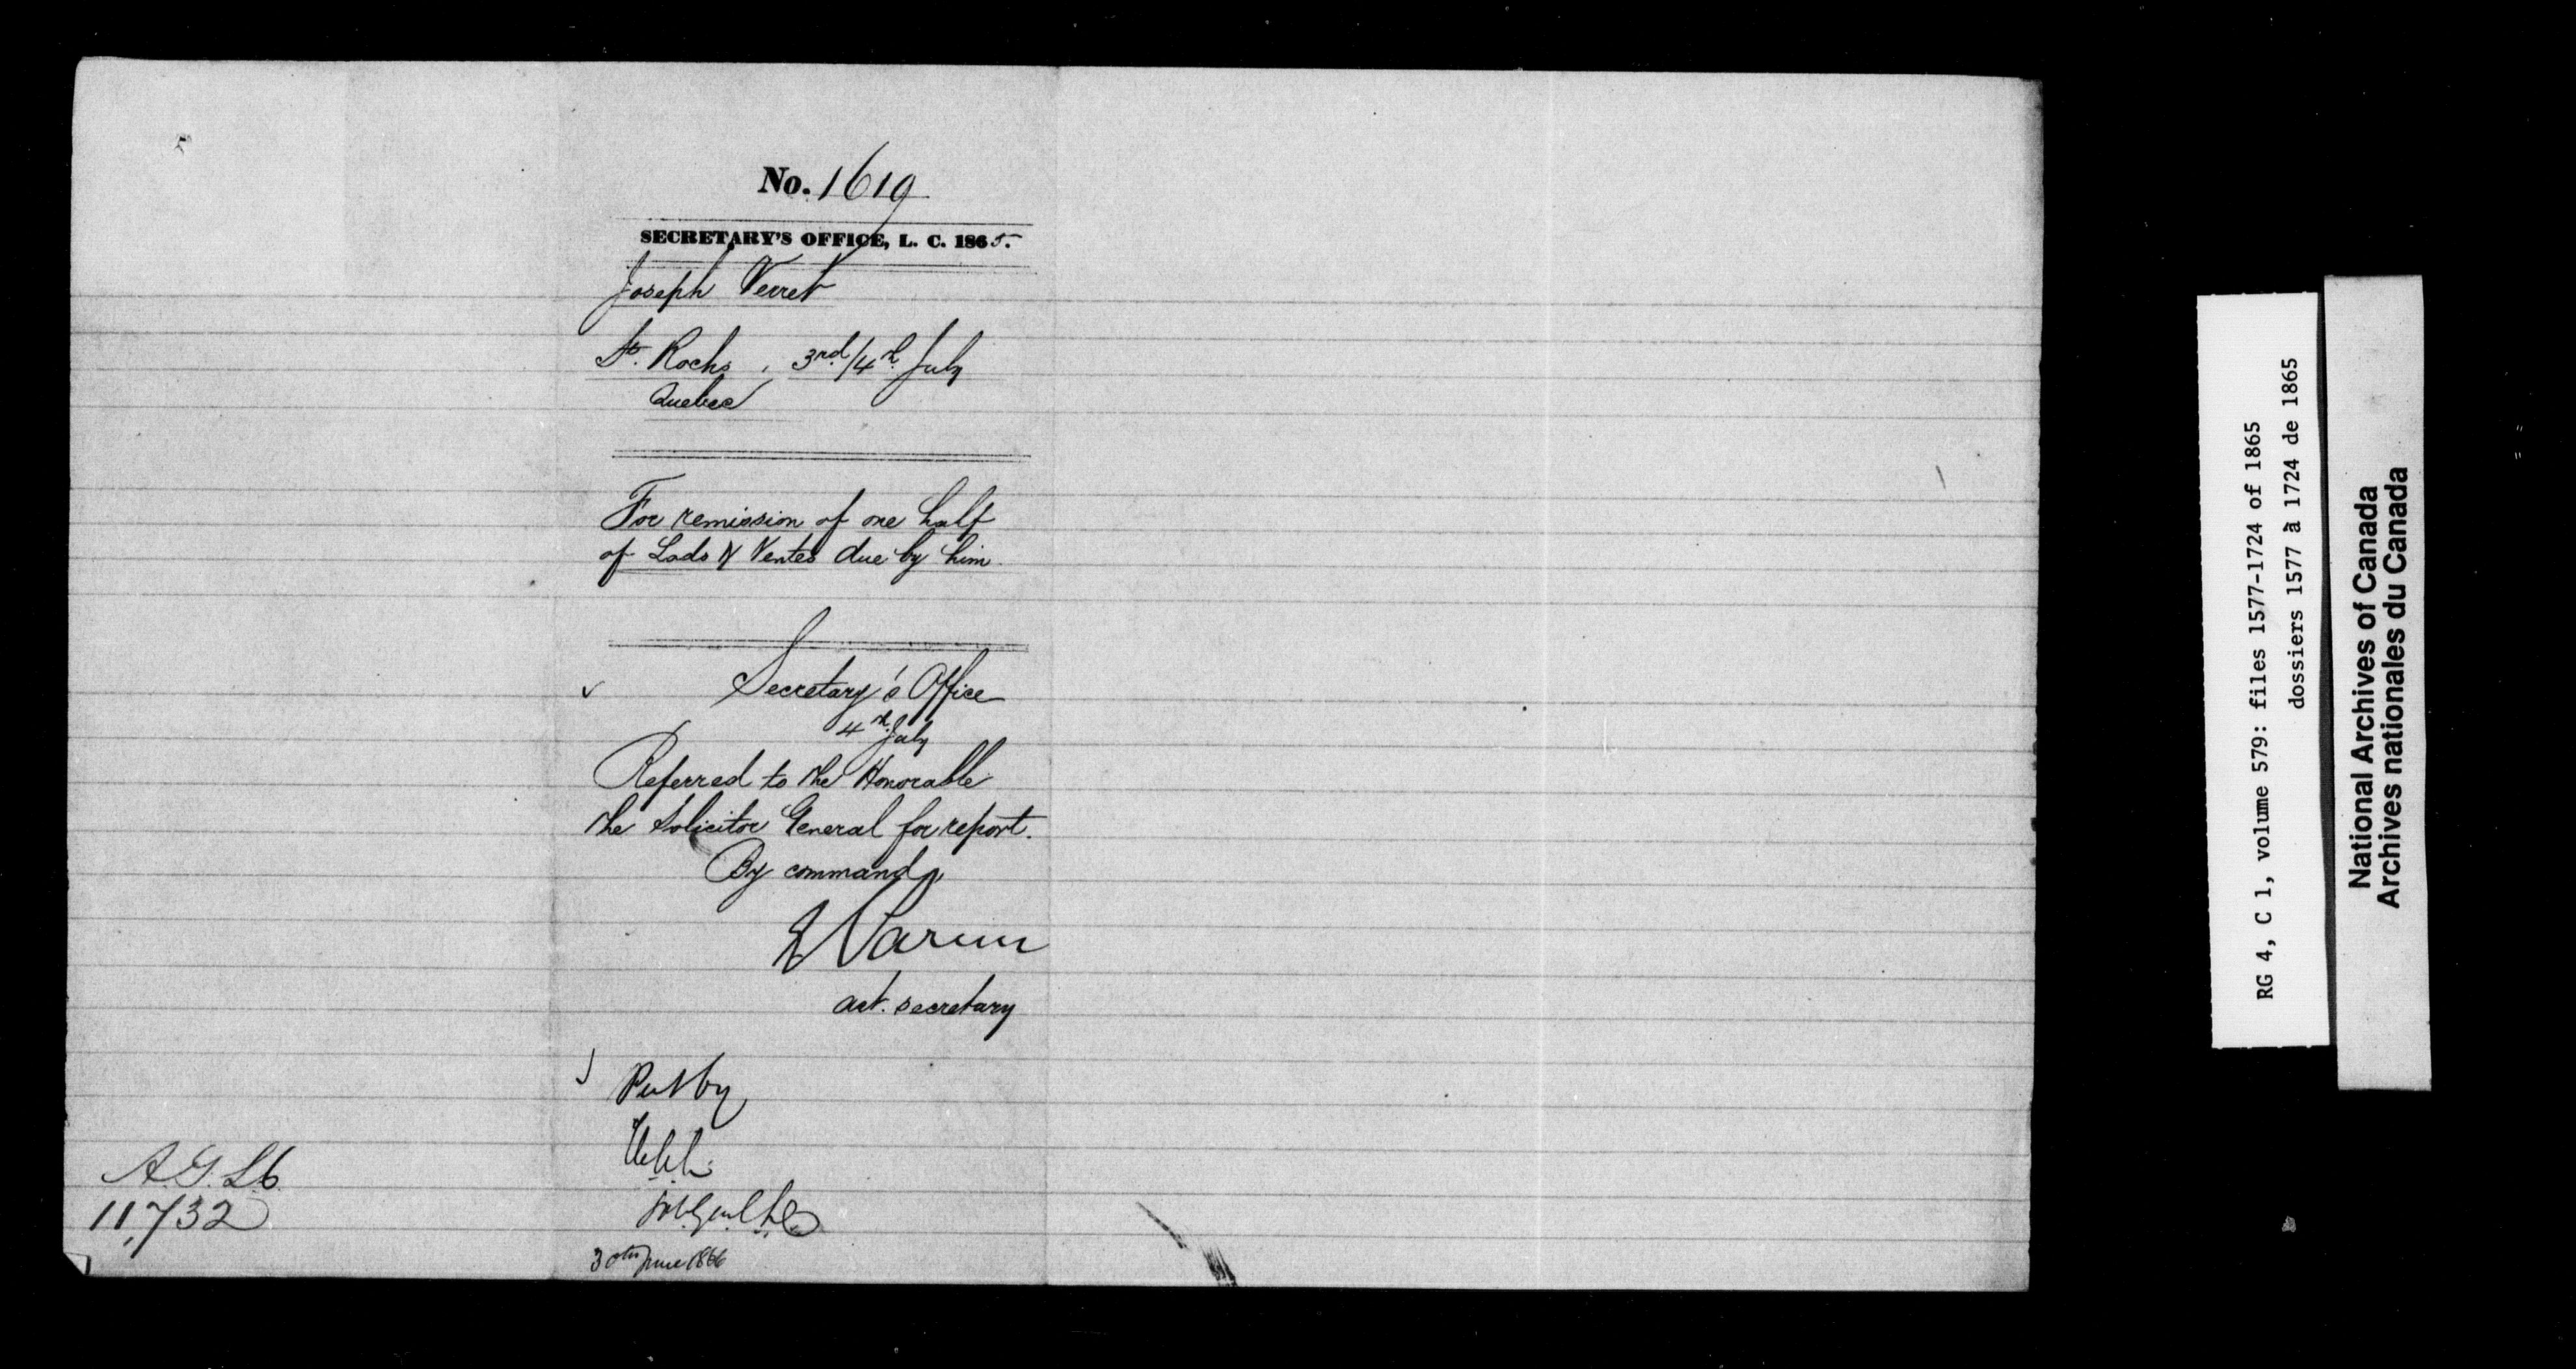 No. 1619
SECRETARY'S OFFICE, L. C. 1865.
Joseph Verret
St. Rochs, 3rd/4th July
Quebec
For remission of one half
of Lods & Ventes due by him.
Secretary's Office
4th July
Referred to the Honorable
the Solicitor General for report.
By command,
act. secretary
Put by
30th June 1866
A.G.L.C.
11,732
RG 4, C 1, volume 579: files 1577-1724 of 1865
dossiers 1577 à 1724 de 1865
National Archives of Canada
Archives nationales du Canada